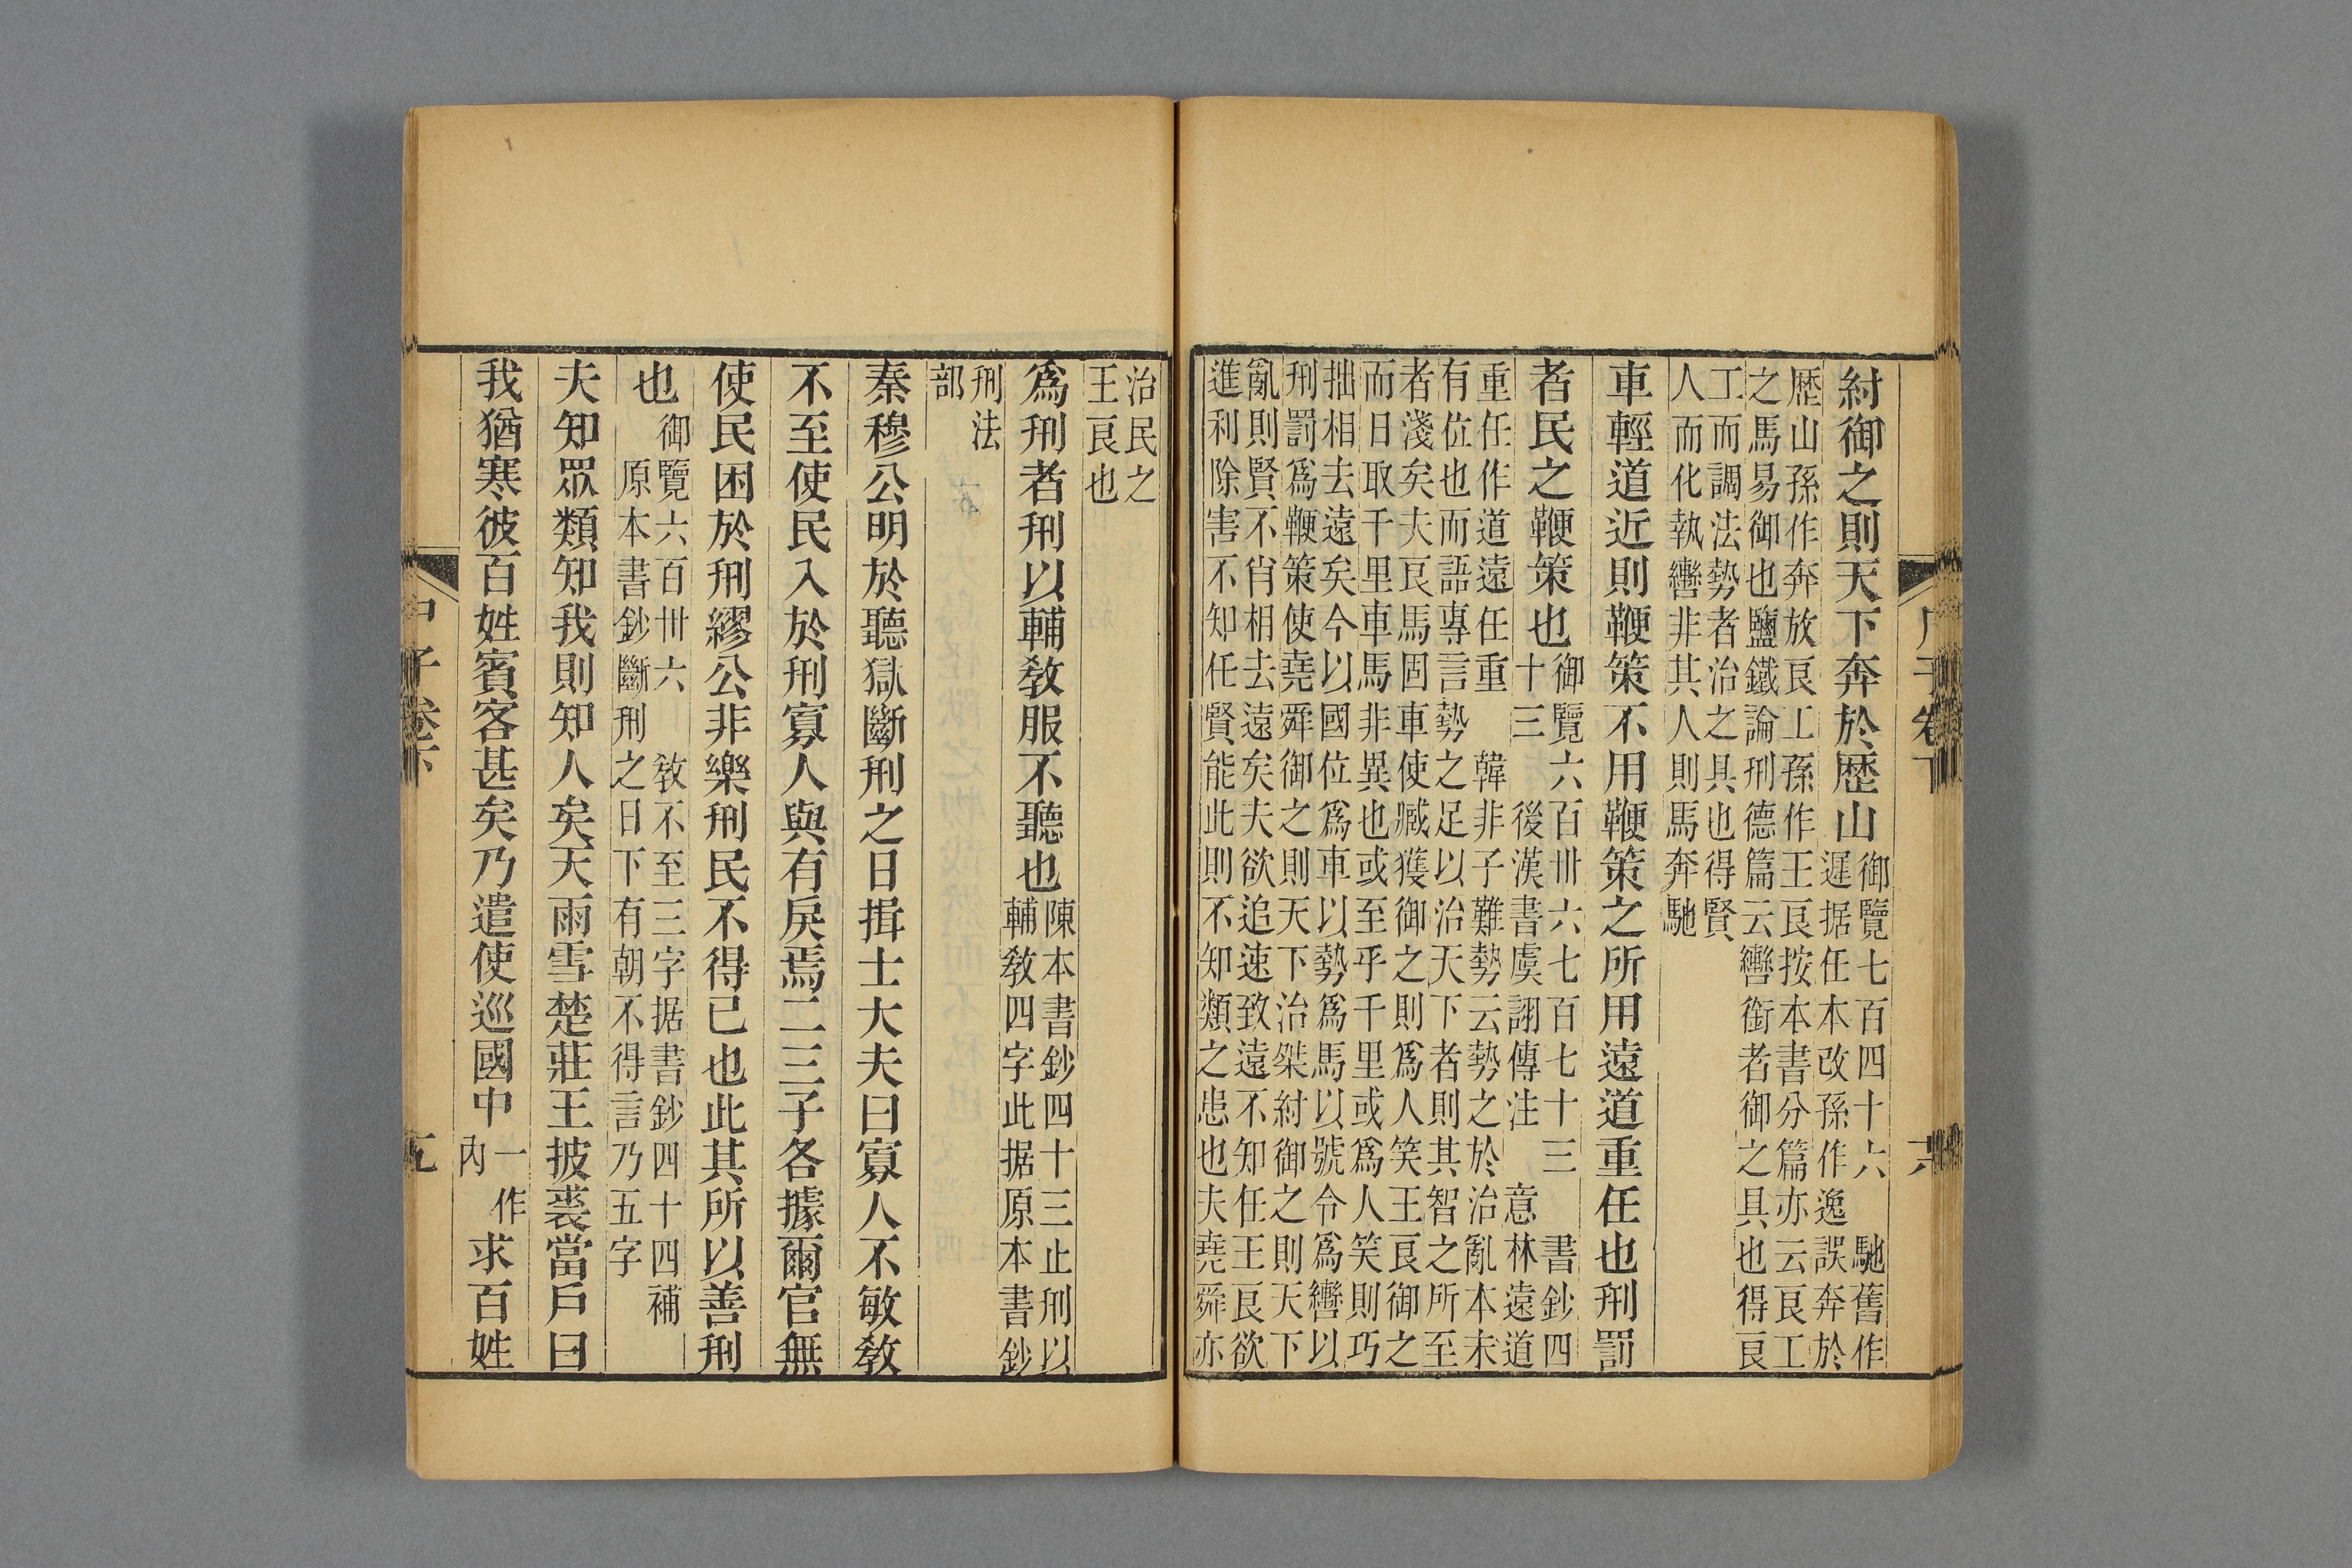 紂御之則天下奔於歷山御覽七百四十六　馳舊作
遲据任本改孫作逸　誤奔於
歷山孫作奔放良工孫作王良按本書分篇亦云良工
之馬易御也鹽鐵論刑德篇云轡銜者御之具也得良
工而調法勢者治之具也得賢
人而化執轡非其人則馬奔馳
車輕道近則鞭策不用鞭策之所用遠道重任也刑罰
者民之鞭策也御覽六百卅六七百七十三　書鈔四
十三　後漢書虞詡傳注　意林遠道
重任作道遠任重　韓非子難勢云勢之於治亂本末
有位也而語專言勢之足以治天下者則其智之所至
者淺矣夫良馬固車使臧獲御之則爲人笑王良御之
而日取千里車馬非異也或至乎千里或爲人笑則巧
拙相去遠矣今以國位爲車以勢爲馬以號令爲轡以
刑罰爲鞭策使堯舜御之則天下治桀紂御之則天下
亂則賢不肖相去遠矣夫欲追速致遠不知任王良欲
進利除害不知任賢能此則不知類之患也夫堯舜亦
治民之
王良也
爲刑者刑以輔敎服不聽也陳本書鈔四十三止刑以
輔敎四字此据原本書鈔
刑法
部
秦穆公明於聽獄斷刑之日揖士大夫曰寡人不敏敎
不至使民入於刑寡人與有戾焉二三子各據爾官無
使民困於刑繆公非樂刑民不得已也此其所以善刑
也御覽六百卅六　敎不至三字据書鈔四十四補
原本書鈔斷刑之日下有朝不得言乃五字
夫知眾類知我則知人矣天雨雪楚莊王披裘當戶曰
我猶寒彼百姓賓客甚矣乃遣使巡國中一作
內求百姓
子卷下